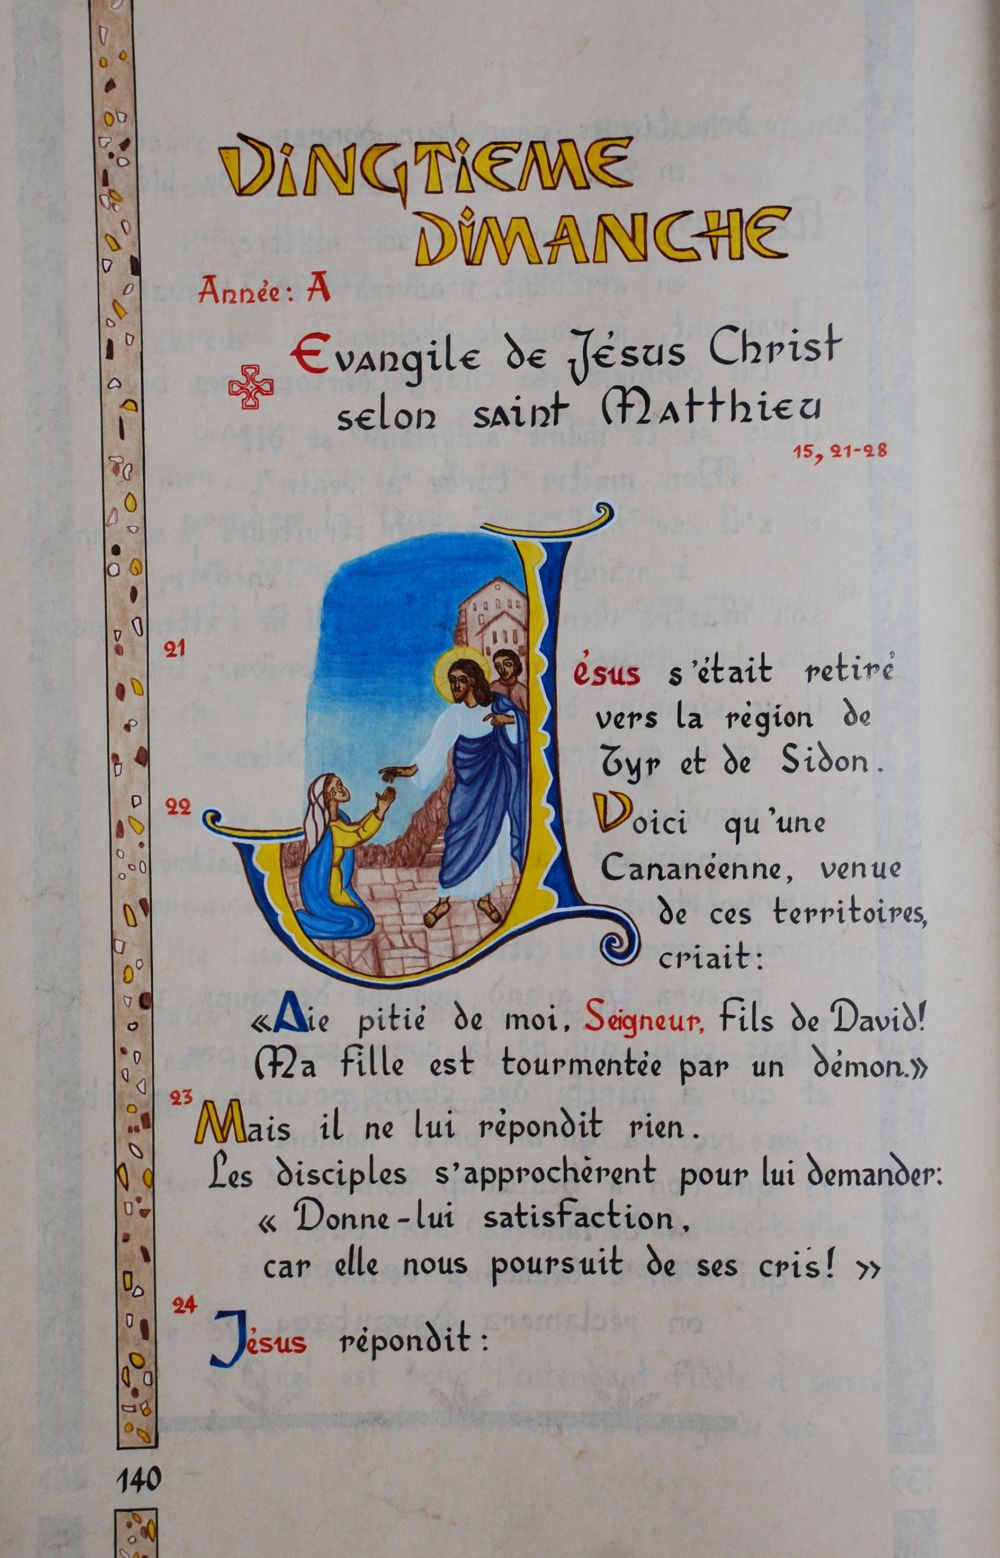 VINGTIEME
DIMANCHE
Année: A
Evangile de Jésus Christ
selon saint Matthieu
15, 21-28
21 Jésus s'était retiré
vers la région de
Tyr et de Sidon.
22 Voici qu'une
Cananéenne, venue
de ces territoires,
criait:
«Aie pitié de moi, Seigneur, Fils de David!
Ma fille est tourmentée par un démon.»
23 Mais il ne lui répondit rien.
Les disciples s'approchèrent pour lui demander:
« Donne-lui satisfaction,
car elle nous poursuit de ses cris! »
24 Jésus répondit:
140